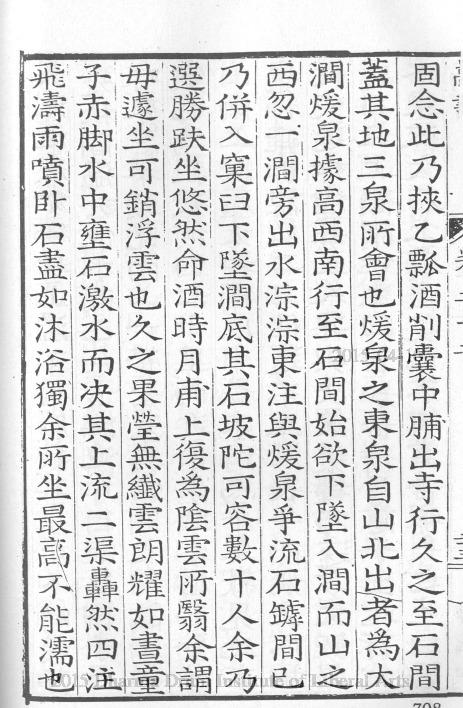 固念此乃挾乙瓢酒削囊中脯出寺行久之至石間
蓋其地三泉所會也煖泉之東泉自山北出者為大
澗煖泉據高西南行至石間始欲下墜入澗而山之
西忽一澗旁出水淙淙東注與煖泉爭流石罅間已
乃併入窠臼下墜澗底其石坡陀可容數十人余乃
選勝趺坐悠然命酒時月甫上復為陰雲所翳余謂
毋遽坐可銷浮雲也久之果瑩無纎雲朗耀如晝童
子赤脚水中壅石激水而决其上流二渠轟然四注
飛濤雨噴卧石盡如沐浴獨余所坐最高不能濡也
708